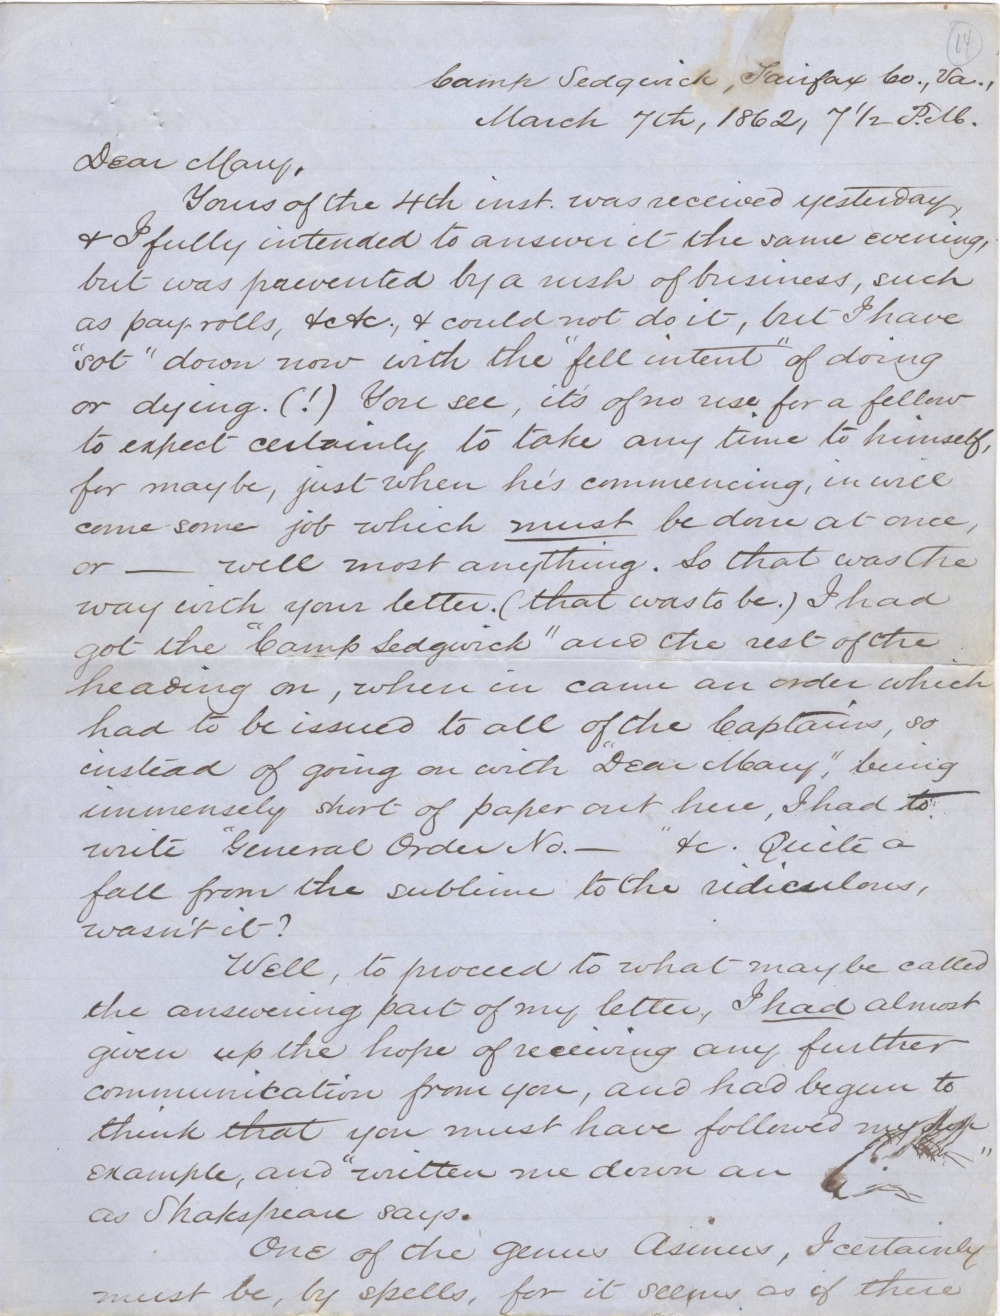 14
Camp Sedgwick, Fairfax Co., Va.,
March 7th, 1862, 7 1/2 P.M.
Dear Mary,
Yours of the 4th inst. was received yesterday,
& I fully intended to answer it the same evening,
but was prevented by a rush of business, such
as pay-rolls, &c&c., & could not do it, but I have
"sot" down now with the "fell intent" of doing
or dying. (!) You see, it's of no use for a fellow
to expect certainly to take any time to himself,
for maybe, just when he's commencing, in will
come some job which must be done at once,
or — well most anything. So that was the
way with your letter. (that was to be.) I had
got the "Camp Sedgwick" and the rest of the
heading on, when in came an order which
had to be issued to all of the Captains, so
instead of going on with "Dear Mary", being
immensely short of paper out here, I had to
write "General Order No. — " &c. Quite a
fall from the sublime to the ridiculous,
wasn't it?
Well, to proceed to what may be called
the answering part of my letter, I had almost
given up the hope of receiving any further
communication from you, and had begun to
think that you must have followed my
example, and "written me down an "
as Shakspeare says.
One of the genus Asinus, I certainly
must be, by spells, for it seems as if there